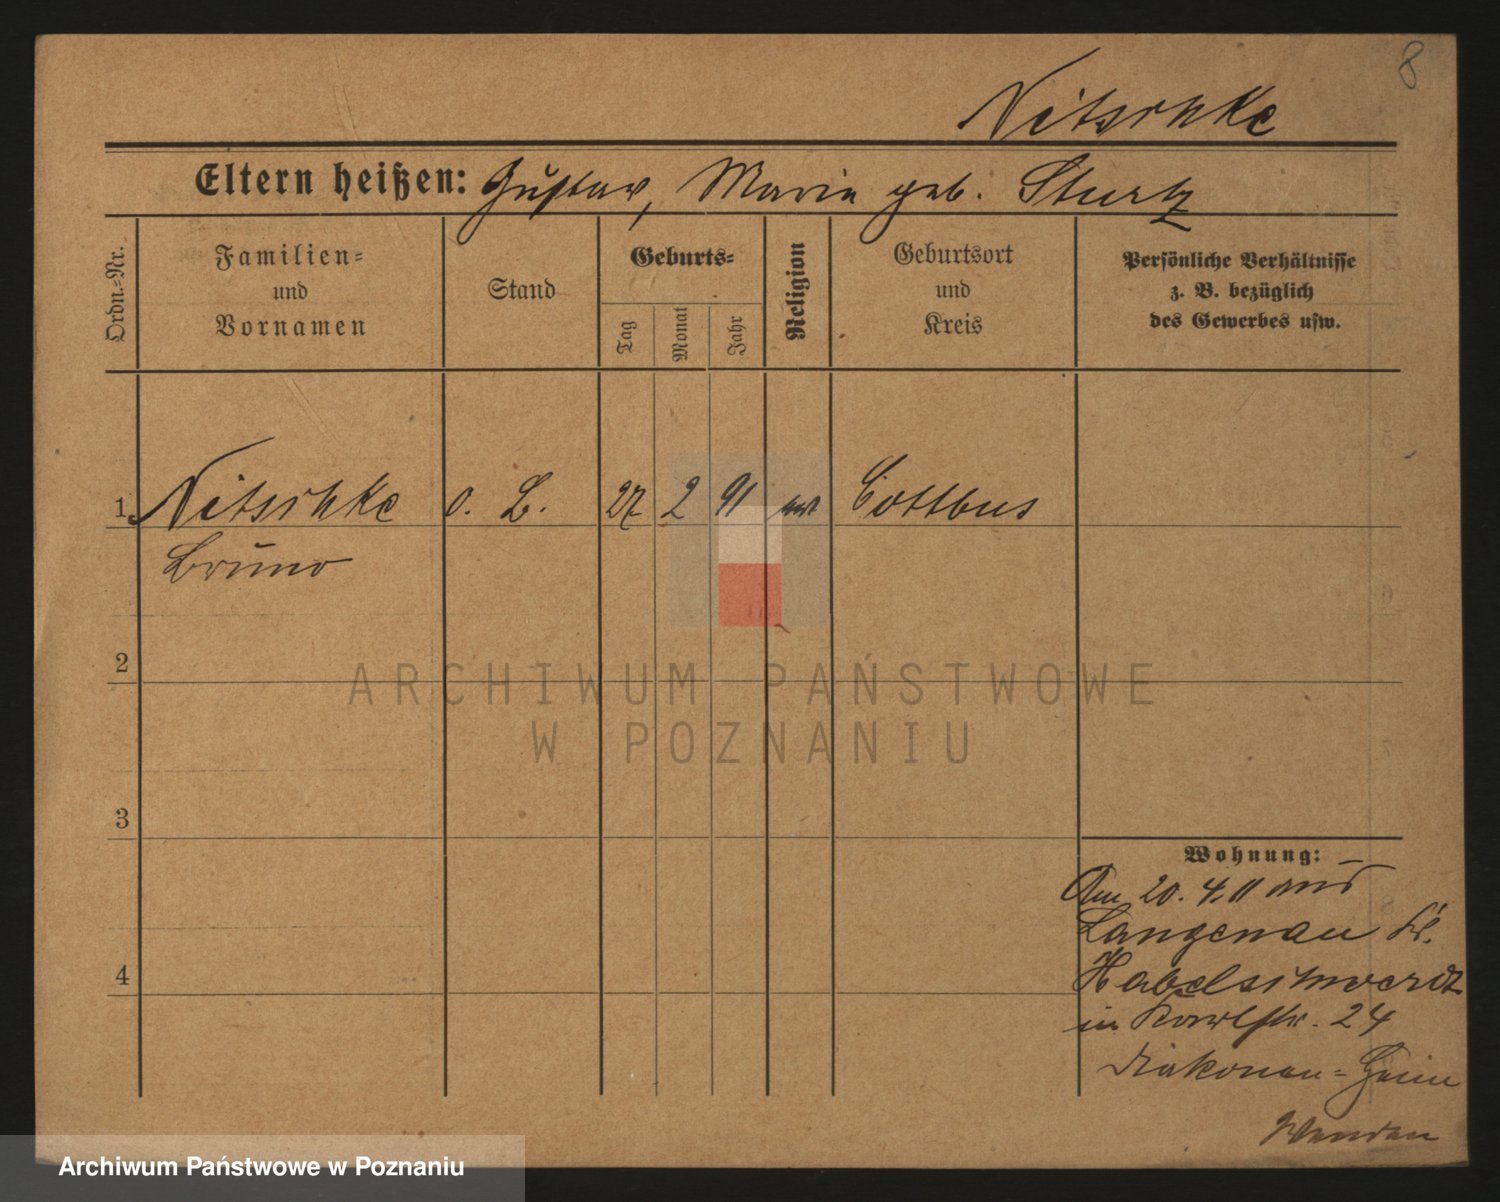 8
Nitschke
Eltern heißen: Gustav, Marie geb. Sturtz
Ordn.-Nr.
Familien-
und
Vornamen
Stand
Geburts-
Tag
Monat
Jahr
Religion
Geburtsort
und
Kreis
Persönliche Verhältnisse
z. B. bezüglich
des Gewerbes usw.
1 Nitschke o. B. 27 2 91 Cottbus
Bruno
2
3
4
Wohnung:
Am 20. 4. 11 aus
Langenau Kr.
Habelschwerdt
in Karlstr. 24
Diakonen-Heim
ARCHIWUM PAŃSTWOWE
W POZNANIU
Archiwum Państwowe w Poznaniu